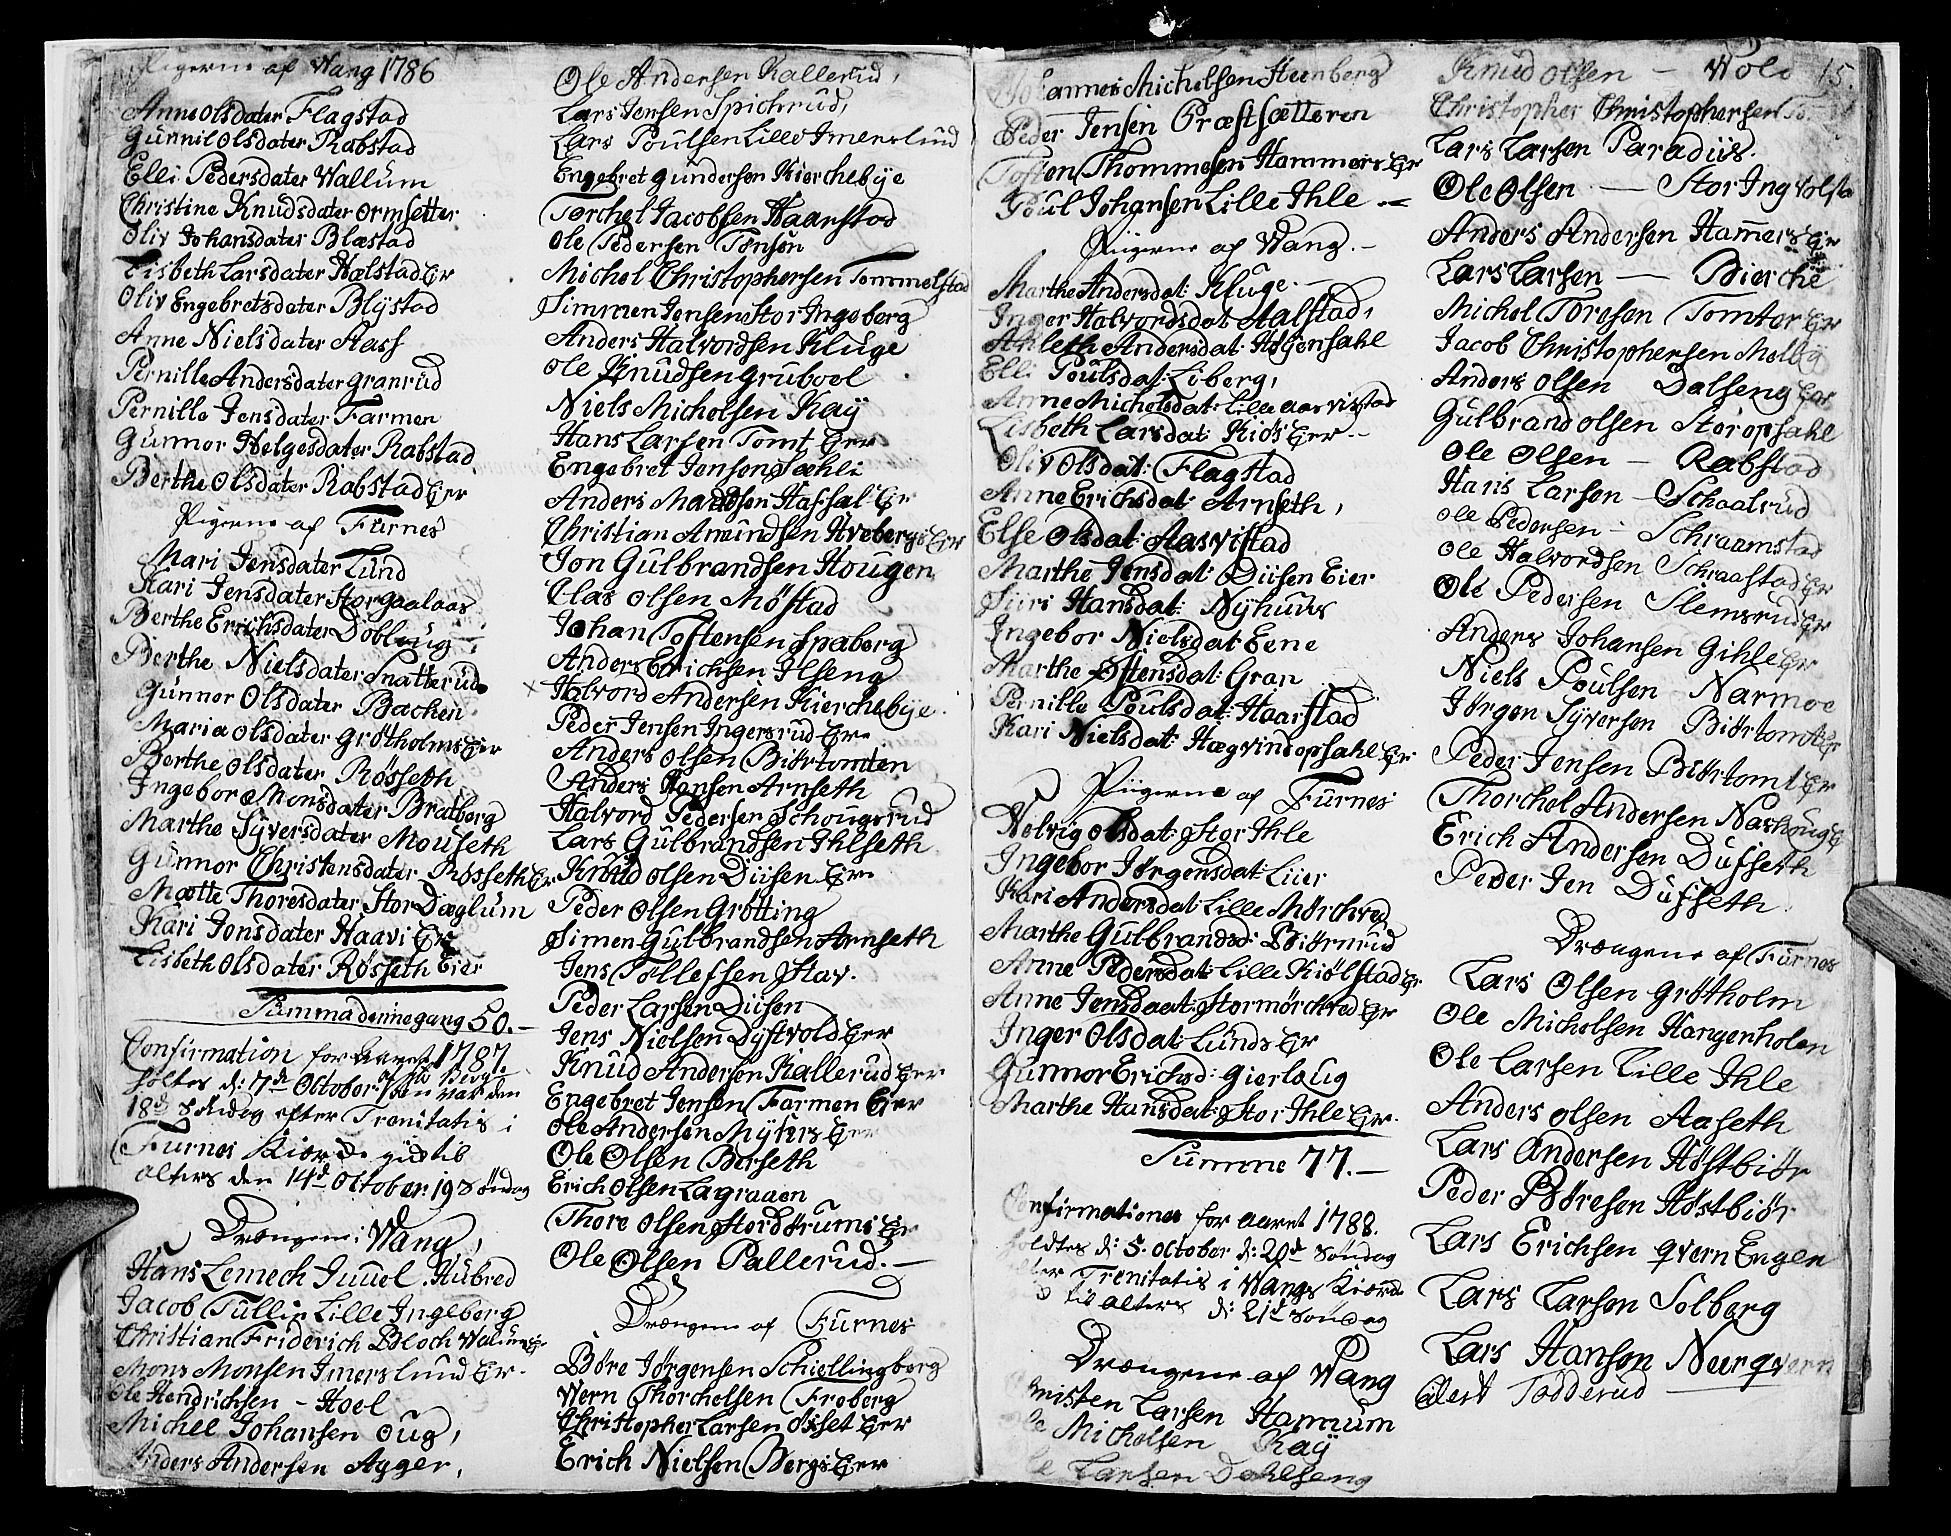 Pigerne af Wang 1786
Anne Olsdater Flagstad
Gunnil Olsdater Rabstad
Elli Pedersdater Wallum
Christine Knudsdater Ormsetter
Oliv Johansdater Blæstad
Lisbeth Larsdater Hælstad Er
Oliv Engebretsdater Blÿstad
Anne Nielsdater Aass
Pernille Andersdater Granrud
Pernille Jensdater Farmen
Gunnor Helgesdater Rabstad
Berthe Olsdater Rabstad Eier
Pigerne af Furnes
Mari Jensdater Lund
Kari Jensdater Storgaalaas
Berthe Erichsdater Dobloug
Berthe Nielsdater Snatterud
Gunnor Olsdater Bachen
Maria Olsdater Grøtholms Eier
Berthe Olsdater Røsseth
Ingebor Monsdater Bratberg
Marthe Sÿversdater Mouseth
Gunnor Christensdater Røsseth Er
Mætte Thoresdater Stor Dæglum
Kari Jonsdater Haavi Er
Lisbeth Olsdater Røsseth Eier
Summa denne gang 50.—
Confirmation for Aaret 1787.
holtes d: 7de October
18de Søndag efter Trenitatis i
Furnes Kirche gik til
alters den 14de October 19 Søndag
Drængene i Wang,
Hans Lemech Juuel Hubred
Jacob Tullin Lille Ingeberg
Christian Friderich Bloch Walum Er
Mons Monsen Imerslund Er.
Ole Hendrichsen - Hoel
Michel Johansen Oug,
Anders Andersen Ayger,
Ole Andersen Kallerud,
Lars Jensen Spichrud,
Lars Poulsen Lille Imerslund
Engebret Gundersen Kierchebÿe
Torchel Jacobsen Haanstad
Ole Pedersen Tønsøn
Michel Christophersen Tommelstad
Simmen Jensen Stor Ingeberg
Anders Halvordsen Kluge
Ole Knudsen Gruboel
Niels Michelsen Kaÿ
Hans Larsen Tomt Eier
Engebret Jensen Sæhli
Anders Madsen Hafsal Er
Christian Amundsen Hvebergs Eier
Jon Gulbrandsen Hougen
Clas Olsen Møstad
Johan Toftensen Spaberg
Anders Erichsen Ilseng
x Halvord Andersen Kierchebÿe
Peder Jensen Ingersrud Er
Anders Olsen Biørtomten
Anders Hansen Arnseth
Halvord Pedersen Schougsrud
Lars Gulbrandsen Ihlseth
Knud Olsen Diisen Er
Peder Olsen Grøtting
Simen Gulbrandsen Arnseth
Jens Tollefsen Stav.
Peder Larsen Diisen
Jens Nielsen Dÿstvold Eier
Knud Andersen Kallerud Eier
Engebret Jensen Farmen Eier
Ole Andersen Mÿhrs Eier
Ole Olsen Berseth
Erich Olsen Lagraaen
Thore Olsen Stordørums Er
Ole Olsen Pallerud.—
Drængene af Furnes
Børe Jørgensen Schiellingberg
Wern Thorchelsen Froberg
Christopher Larsen Osset Eier
Erich Nielsen Bergs Eier
Johannes Michelsen Steenberg
Peder Jensen Præstsætteren
Toften Thommesen Hammers Eier
Poul Johansen Lille Ihle —
Piigerne af Wang.—
Marthe Andersdat: Kluge.
Inger Halvordsdat Aalstad,
Ahleth Andersdat: Høÿensahl
Elli Poulsdat: Liberg,
Anne Michelsdat: Lille aasvistad
Lisbeth Larsdat: Kios Eier.
Oliv Olsdat: Flagstad
Anne Erichsdat Arnseth,
Else Olsdat: Aasvistad
Marthe Jensdat: Diisen Eier
Siiri Hansdat: Nÿhuus
Ingebor Nielsdat Eene
Marthe Østensdat: Gran
Pernille Poulsdat: Haarstad
Kari Nielsdat: Hægvindopsahl Er
Piigerne af Furnes
Helvig Olsdat: Stor Ihle
Ingebor Jørgensdat: Liier
Kari Andersdat: Lille Mørchved
Marthe Gulbrandsd: Biørnrud
Anne Pedersdat: Lille Kiølstad Er
Anne Jensdaat: Stormørchved Er
Inger Olsdat: Lunds Er
Gunnor Erichsd: Gierlaug
Marthe Hansdat: Stor Ihle Er.
Summe 77.—
Confirmationes for aaret 1788.
holdtes d: 5. October d: 20de Søndag
efter Trenitatis i Wangs Kirche
til alters d: 21de Søndag
Drængene af Wang
Christen Larsen Hamum
Ole Michelsen Kaÿ
Ole Larsen Dahlseng
15.
Knud Olsen — Wold
Christopher Christophersen
Lars Larsen Paradiis.
Ole Olsen — Stor Ingvolsta
Anders Andersen Hamers Er
Lars Larsen — Bierche
Michel Toresen Tomter Er
Jacob Christophersen Melbÿ
Anders Olsen Dalseng Eier
Gulbrand Olsen Storopsahl
Ole Olsen — Rabstad
Hans Larsen — Schaalrud
Ole Pedersen — Schraamstad
Ole Halvordsen Schraastad Er
Ole Pedersen Slemsrud Er
Anders Johansen Gihle Er
Niels Poulsen Narmoe
Jørgen Sÿversen Biørtomt Er
Peder Jensen Biørtomt Er
Thorchel Andersen Nashoug Er
Erich Andersen Dufseth
Peder Jen Dufseth
Drængene af Furnes
Lars Olsen Grøtholm
Ole Michelsen Hangenholen
Ole Larsen Lille Ihle
Anders Olsen Aaseth
Lars Andersen Høstbiør
Peder Børesen Høstbiør
Lars Erichsen Qvern Engen
Lars Larsen Solberg
Lars Hansen Neerqvern
Elert Todderud —